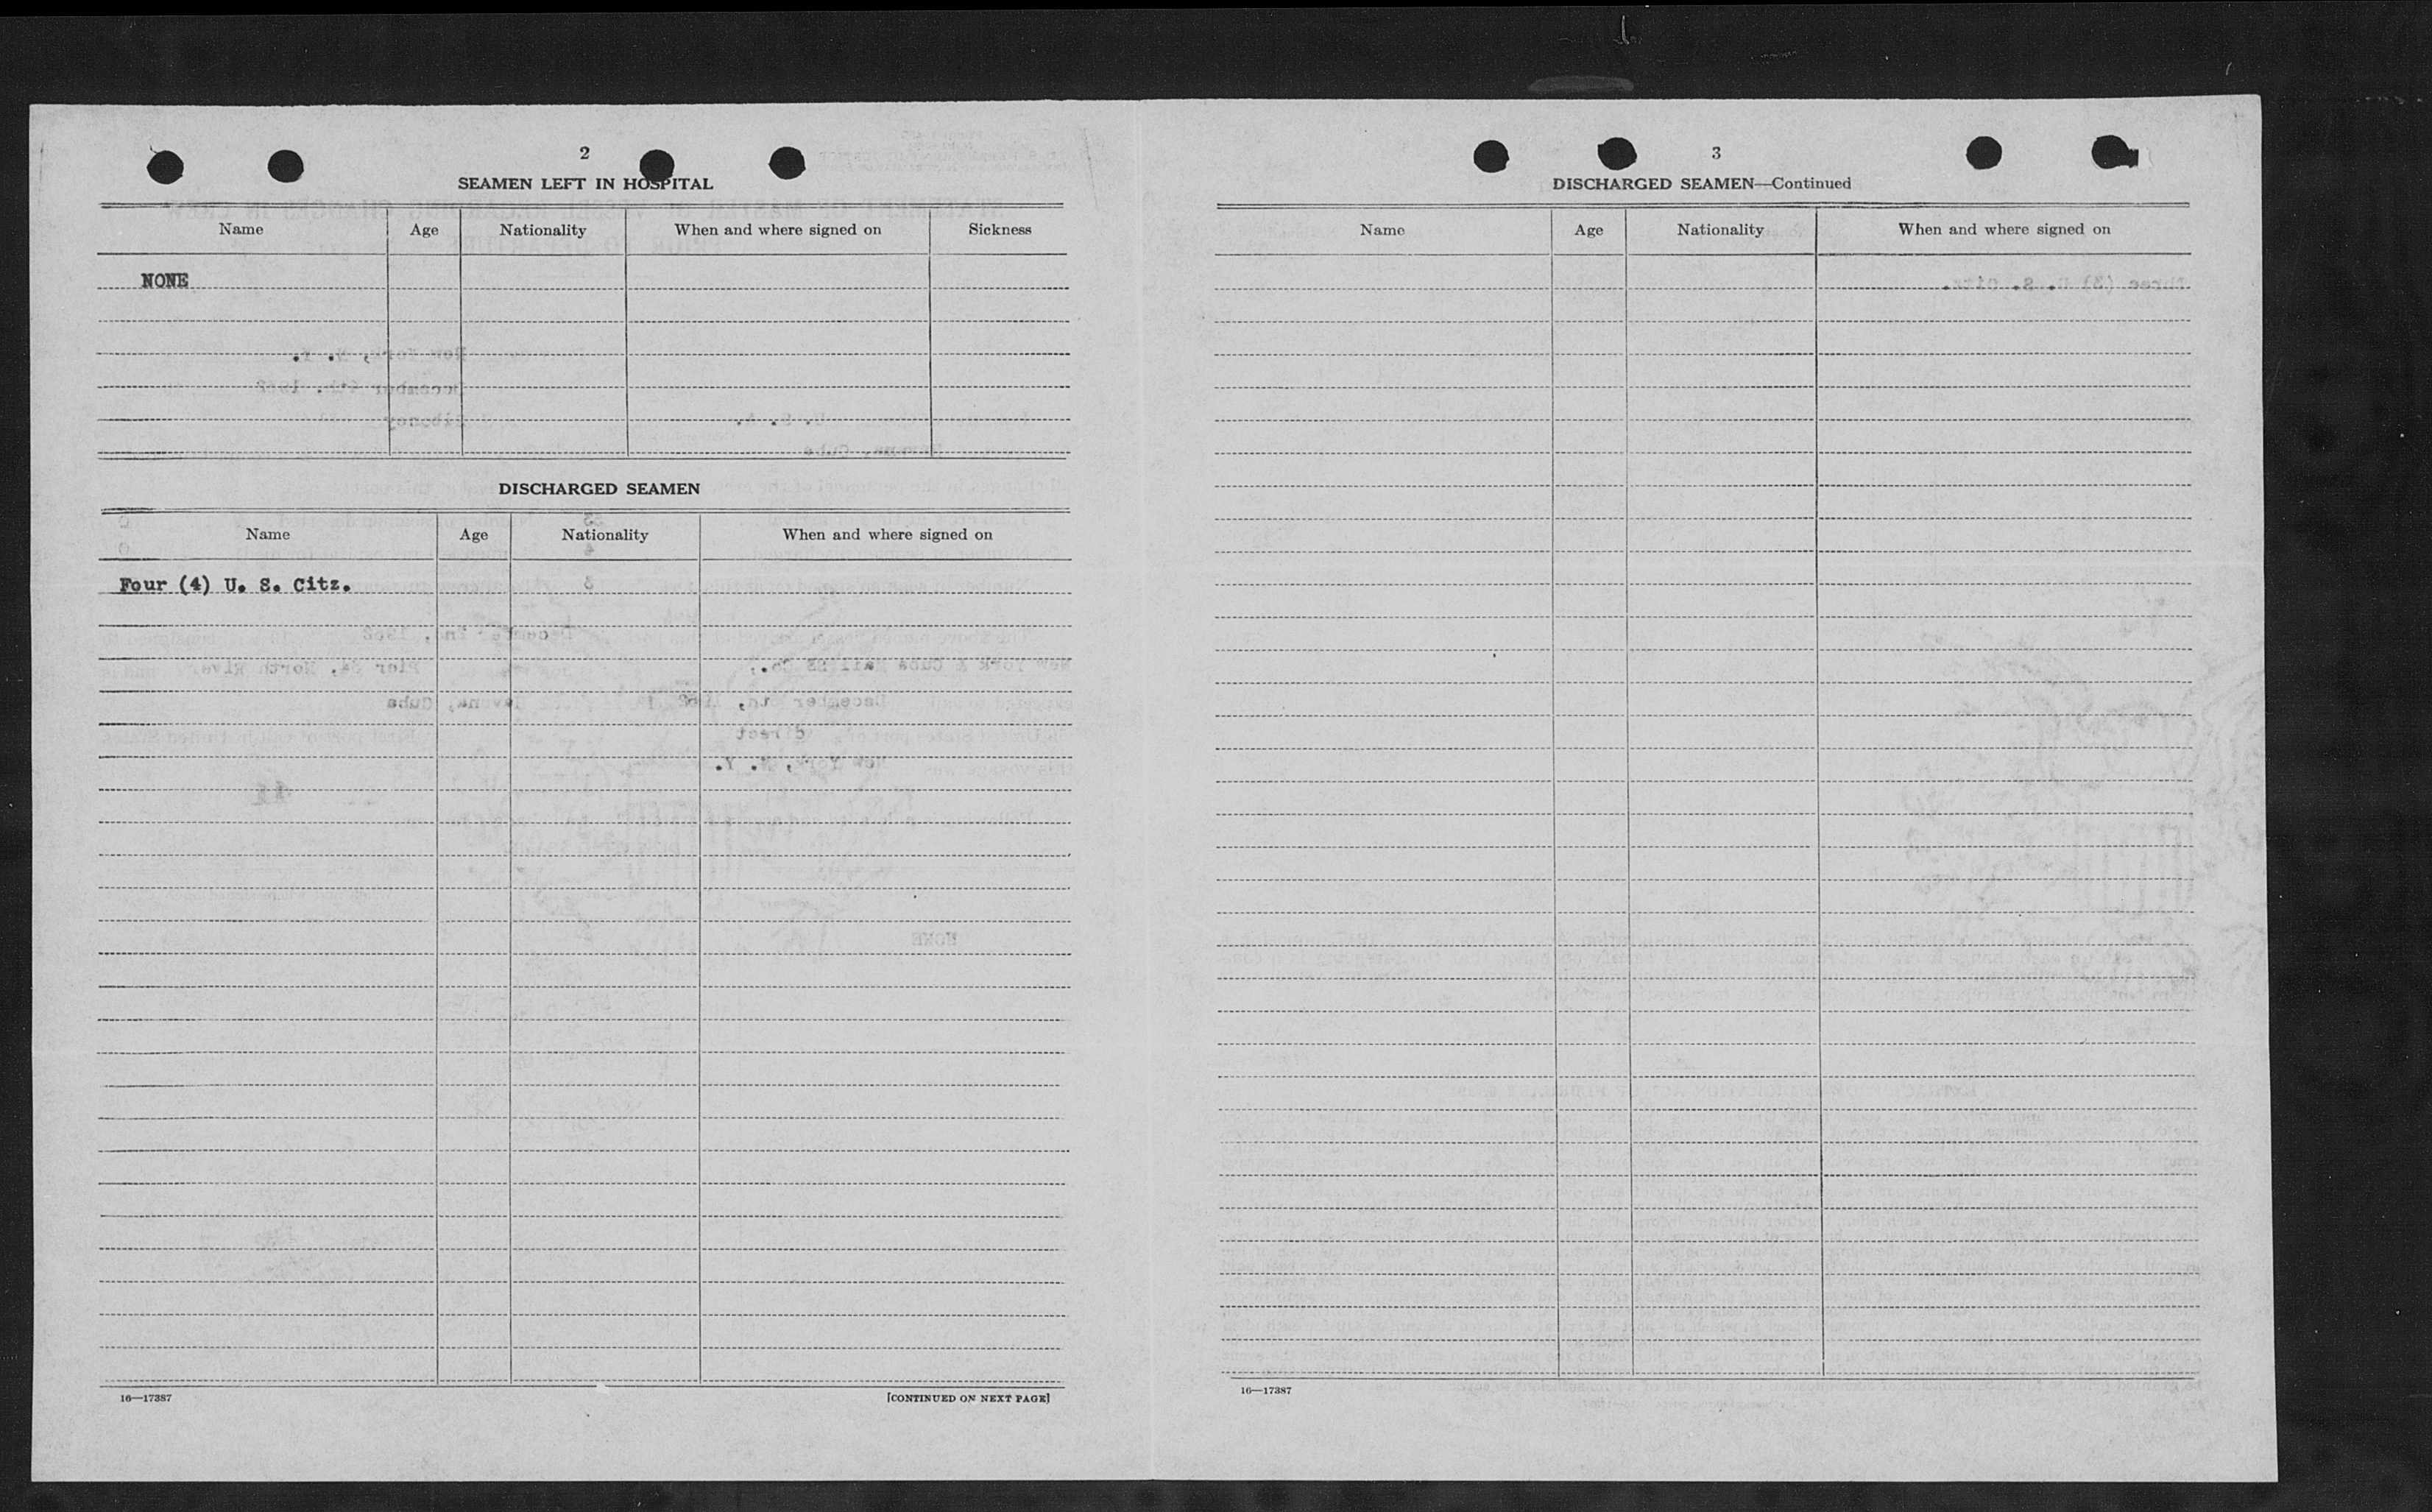 2
SEAMEN LEFT IN HOSPITAL
Name Age Nationality When and where signed on Sickness
NONE
DISCHARGED SEAMEN
Name Age Nationality When and where signed on
Four (4) U. S. Citz.
16—17387 [CONTINUED ON NEXT PAGE]
3
DISCHARGED SEAMEN—Continued
Name Age Nationality When and where signed on
16—17387